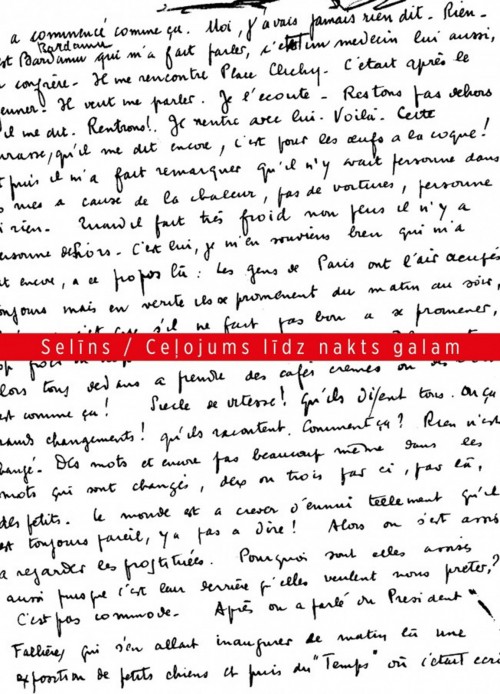 a commencé comme ça. Moi, j'avais jamais rien dit. Rien.
Bardamu
est Bardamu qui m'a fait parler, c'était un medecin lui aussi,
confrère. Il me rencontre Place Clichy. C'était après le
jeuner. Il veut me parler. Je l'écoute. Restons pas dehors
il me dit. Rentrons!. Je rentre avec lui. Voilà. Cette
rrasse, qu'il me dit encore, c'est pour les œufs a la coque!
puis il m'a fait remarquer qu'il n'y avait personne dans
rues a cause de la chaleur, pas de voitures, personne
rien. Quand il fait très froid non plus il n'y a
ersonne dehors. C'est lui, je m'en souviens bien qui m'a
it encore, a ce propos là : Les gens de Paris ont l'air occupés
oujours mais en verité ils se promenent du matin au soir,
s'il ne fait pas bon a se promener,
Selīns / Ceļojums līdz nakts galam
op froid
lors tous dedans a prendre des cafés cremes ou des
est comme ça! Siecle de vitesse! Qu'ils disent tous. On ça
rands changements! qu'ils racontent. Comment ça? Rien n'est
hangé. Des mots et encore pas beaucoup même dans les
mots qui sont changés, deux ou trois par ci, par là,
des petits. Le monde est a crever d'ennui tellement qu'il
est toujours pareil, y a pas a dire! Alors on s'est assis
a regarder les prostituées. Pourquoi sont elles assises
aussi puisque c'est leur derrière qu'elles veulent nous preter?
C'est pas commode. Après on a parlé du President
Fallières qui s'en allait inaugurer ce matin là une
exposition de petits chiens et puis du "Temps" où c'était ecrit